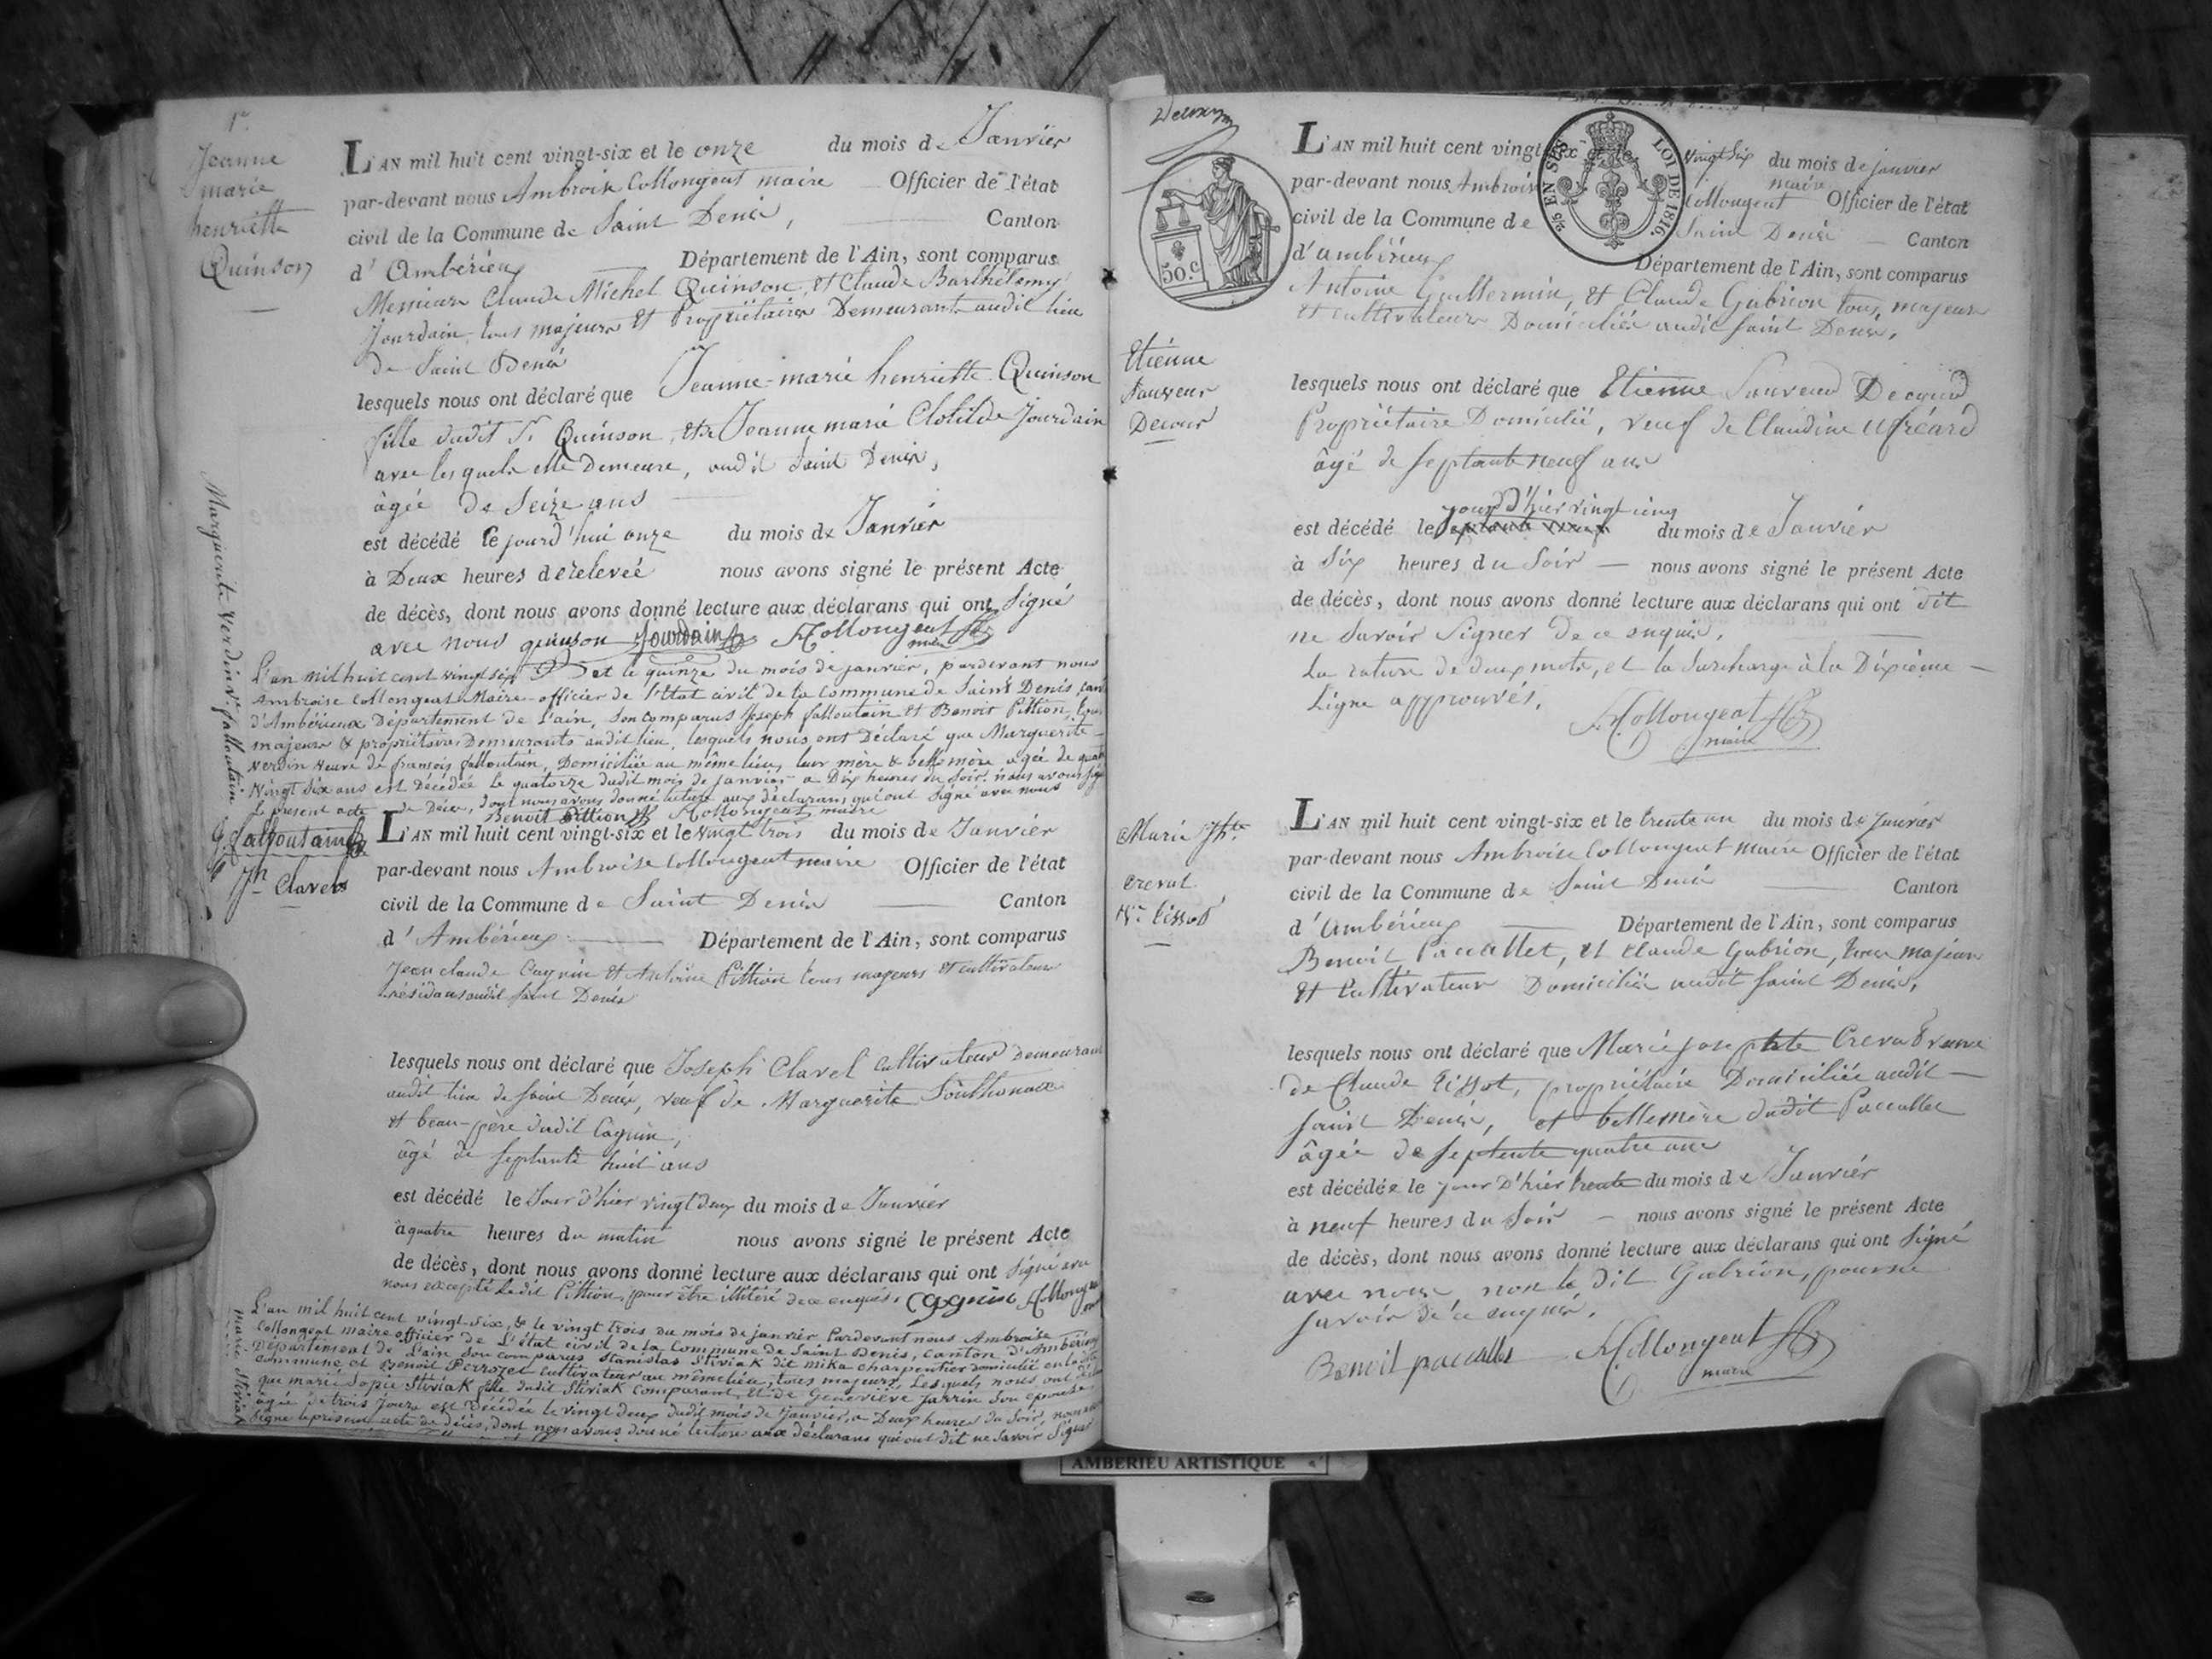 1er
Jeanne
marie
henriette
Quinson
L'AN mil huit cent vingt-six et le onze du mois de Janvier
par-devant nous Ambroise Collongeat maire Officier de l'état
civil de la Commune de Saint Denis, Canton
d'Ambérieux Département de l'Ain, sont comparus
Messieurs Claude Michel Quinson, et Claude Barthélemy
Jourdain, tous majeurs et Propriétaires Demeurants audit lieu
de Saint Denis
lesquels nous ont déclaré que Jeanne-marie henriette Quinson
fille dudit Sr Quinson, et de Jeanne marie Clotilde Jourdain
avec lesquels elle Demeure, audit Saint Denis,
âgée de Seize ans
est décédé le jourd'hui onze du mois de Janvier
à Deux heures de relevée nous avons signé le présent Acte
de décès, dont nous avons donné lecture aux déclarans qui ont Signé
avec nous quinson Jourdain AColongeat
maire
Marguerite Verdin Ve falloutain
L'an mil huit cent vingt six et le quinze du mois de janvier, pardevant nous
Ambroise Collongeat Maire officier de l'Etat civil de la Commune de Saint Denis, cant
d'Ambérieux Département de l'ain, Son comparus Joseph falloutain et Benoit Pittion, tous
majeurs & propriétaires Demeurants audit lieu, lesquels nous ont Déclaré que Marguerite
Verdin Veuve de françois falloutain, Domiciliée au même lieu, leur mère & belle mère agée de quatre
Vingt six ans est Décédée le quatorze dudit mois de janvier a Dix heures du soir. nous avons signé
le présent acte de Décès, dont nous avons donné lecture aux déclarans qui ont signé avec nous
Benoit Pittion ACollongeat maire
J falloutain
Jh Clavel
L'AN mil huit cent vingt-six et le vingt trois du mois de Janvier
par-devant nous Ambroise Collongeat maire Officier de l'état
civil de la Commune de Saint Denis Canton
d'Ambérieux Département de l'Ain, sont comparus
Jean claude Cagnin et Antoine Pittion tous majeurs et cultivateurs
résidans audit Saint Denis
lesquels nous ont déclaré que Joseph Clavel Cultivateur Demeurant
audit lieu de Saint Denis, veuf de Marguerite
et beau-père dudit Cagnin,
âgé de septante huit ans
est décédé le Jour d'hier vingt deux du mois de Janvier
à quatre heures du matin nous avons signé le présent Acte
de décès, dont nous avons donné lecture aux déclarans qui ont Signé avec
nous excepté ledit Pittion, pour être illitéré de ce enquis, Cagnin ACollongeat
Marie Stiviak
L'an mil huit cent vingt-six, & le vingt trois du mois de janvier Pardevant nous Ambroise
Collongeat maire officier de L'état civil de la Commune de Saint Denis, canton d'Ambérieux
Département de L'ain Son comparus Stanislas Stiviak dit mika charpentier domicilié en la dite
commune, et Benoit Perrozet Cultivateur au même lieu, tous majeurs, Lesquels nous ont déclaré
que marie Sopie Stiviak fille dudit Stiviak comparant, et de Geneviève Jarrin Son epouse,
âgée de trois Jours est Décédée le vingt deux dudit mois de Janvier, a Deux heures du Soir, nous avons
Signé le présent acte de décès, dont nous avons donné lecture aux déclarans qui ont dit ne savoir Signer
50.c
2/5 EN SUS
LOI DE 1816.
Etiénne
Sauveur
Decour
L'AN mil huit cent vingt-six et le vingt six du mois de janvier
par-devant nous Ambroise Collongeat maire Officier de l'état
civil de la Commune de Saint Denis Canton
d'ambérieux Département de l'Ain, sont comparus
Antoine Guillermin, et Claude Gabrion tous majeurs
et cultivateurs Domiciliés audit Saint Denis,
lesquels nous ont déclaré que Etienne Sauveur
Propriétaire Domicilié, veuf de Claudine
âgé de septante neuf ans
jour d'hier vingt cinq
est décédé le septante neuf du mois de Janvier
à Six heures du Soir nous avons signé le présent Acte
de décès, dont nous avons donné lecture aux déclarans qui ont dit
ne savoir Signer de ce enquis,
La rature de deux mots, et la Surcharge à la Dixième
Ligne approuvés,
ACollongeat
maire
Marie Jhte
Crevat
Ve Tissot
L'AN mil huit cent vingt-six et le trente un du mois de Janvier
par-devant nous Ambroise Collongeat maire Officier de l'état
civil de la Commune de Saint Denis Canton
d'Ambérieux Département de l'Ain, sont comparus
Benoit Paccallet, et Claude Gabrion, tous majeurs
et Cultivateurs Domiciliés audit Saint Denis,
lesquels nous ont déclaré que Marie josephte Crevat veuve
de Claude Tissot, propriétaire Domiciliée audit
Saint Denis, et bellemère dudit Paccallet
âgée de septente quatre ans
est décédée le jour d'hier trente du mois de Janvier
à neuf heures du Soir nous avons signé le présent Acte
de décès, dont nous avons donné lecture aux déclarans qui ont Signé
avec nous, non le dit Gabrion, pour ne
savoir de ce enquis.
Benoit paccallet ACollongeat
maire
AMBERIEU ARTISTIQUE